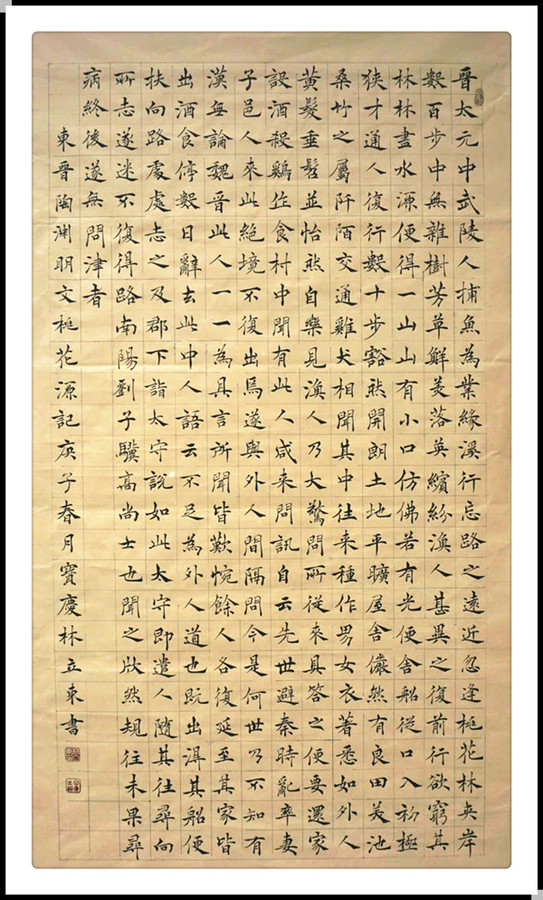 晉太元中武陵人捕魚為業緣溪行忘路之遠近忽逢桃花林夾岸
數百步中無雜樹芳草鮮美落英繽紛漁人甚異之復前行欲窮其
林林盡水源便得一山山有小口仿佛若有光便舍船從口入初極
狹才通人復行數十步豁然開朗土地平曠屋舍儼然有良田美池
桑竹之屬阡陌交通雞犬相聞其中往來種作男女衣著悉如外人
黃髮垂髫並怡然自樂見漁人乃大驚問所從來具答之便要還家
設酒殺鷄作食村中聞有此人咸来問訊自云先世避秦時亂率妻
子邑人來此絕境不復出焉遂與外人間隔問今是何世乃不知有
漢無論魏晉此人一一為具言所聞皆歎惋餘人各復延至其家皆
出酒食停數日辭去此中人語云不足為外人道也既出得其船便
扶向路處處志之及郡下詣太守說如此太守即遣人隨其往尋向
所志遂迷不復得路南陽劉子驥高尚士也聞之欣然規往未果尋
病終後遂無問津者
東晉陶渊明文桃花源記庚子春月寶慶林立東書